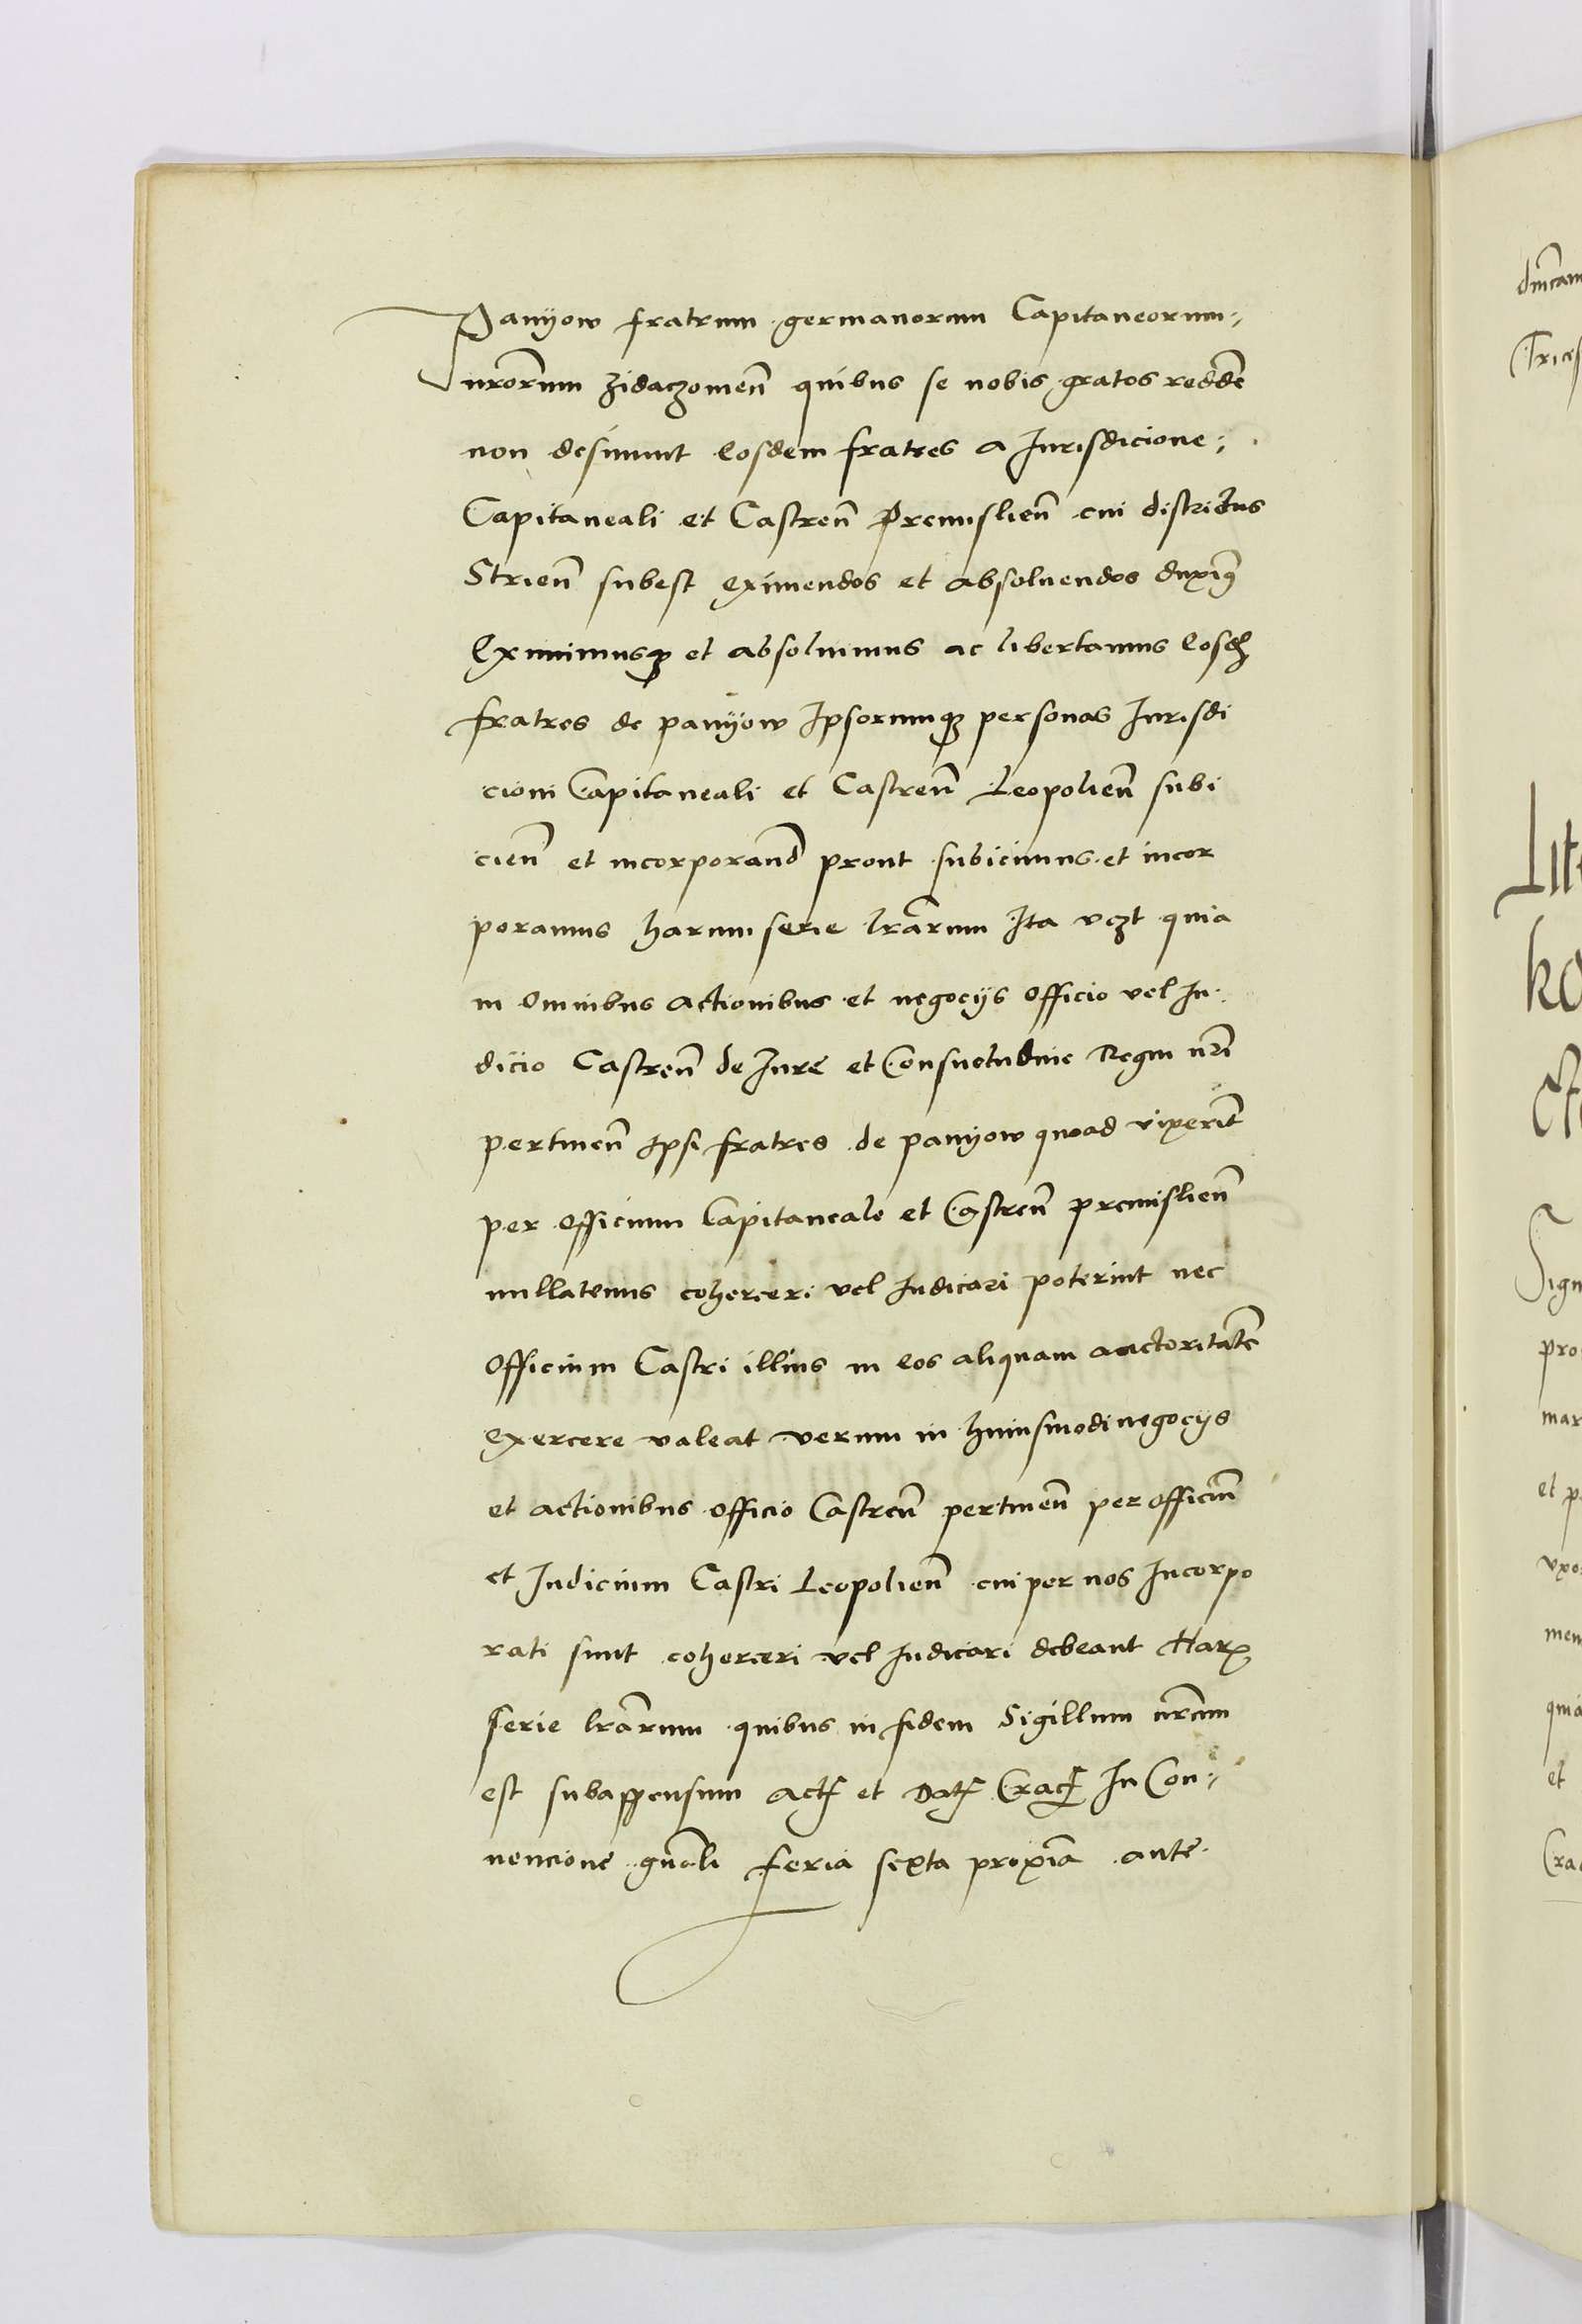 Panyow fratrum germanorum Capitaneorum
nrorum zidaczowien̄ quibus se nobis gratos redde
non desinunt Eosdem fratres a Iurisdicione
Capitaneali et Castren̄ Premislien̄ cui districtus
Strien̄ subest eximendos et absoluendos duximꝰ
Eximimusqꝫ et absoluimus ac libertamus Eosdē
fratres de panyow Ipsorumqꝫ personas Iurisdi
cioni Capitaneali et Castren̄ Leopolien̄ subi
cien̄ et incorporand̄ prout subicimus et incor
poramus harum serie lrarum Ita vczt quia
in omnibus actionibus et negocijs officio vel Iu
dicio Castren̄ de Iure et Consuetudine Regni nri
pertinen̄ Ipsi fratres de panyow quoad vixerint
per officium Capitaneale et Castren̄ premislien̄
nullatenus coherceri vel Iudicari poterint nec
officium Castri illius in eos aliquam auctoritatē
exercere valeat verum in huiusmodi negocijs
et actionibus officio Castren̄ pertinen̄ per officiū
et Iudicium Castri Leopolien̄ cui per nos Incorpo
rati sunt coherceri vel Iudicari debeant Harꝫ
serie lrarum quibus in fidem Sigillum nrum
est subappensum Act et Dat Crac In Con
uencione gnāli feria sexta proxīa ante